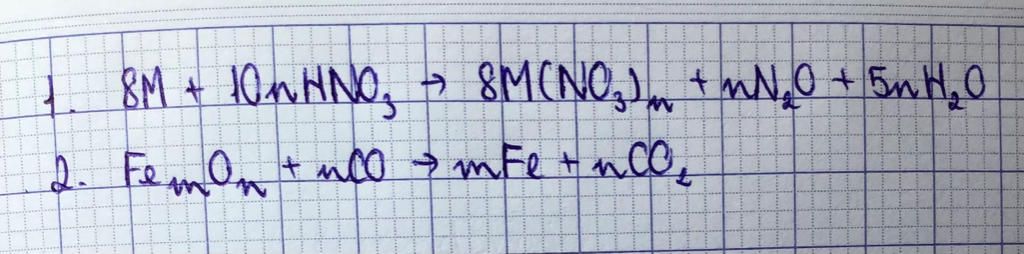 1. 8M + 10nHNO₃ → 8M(NO₃)ₙ + nN₂O + 5nH₂O
2. FeₘOₙ + nCO → mFe + nCO₂